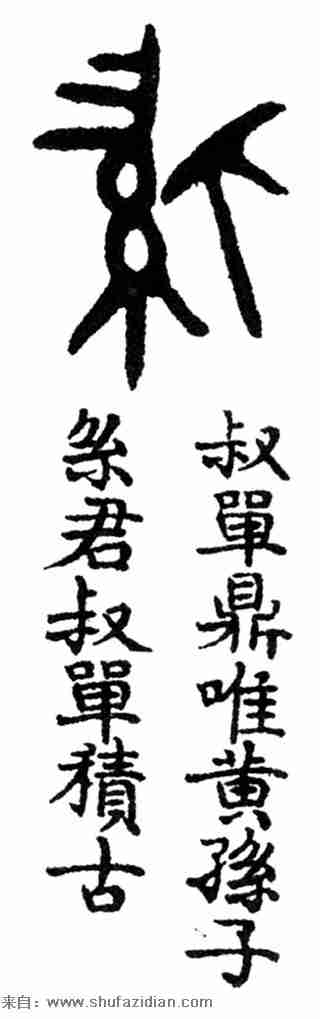 叔單鼎唯黄孫子
系君叔單積古
来自：www.shufazidian.com